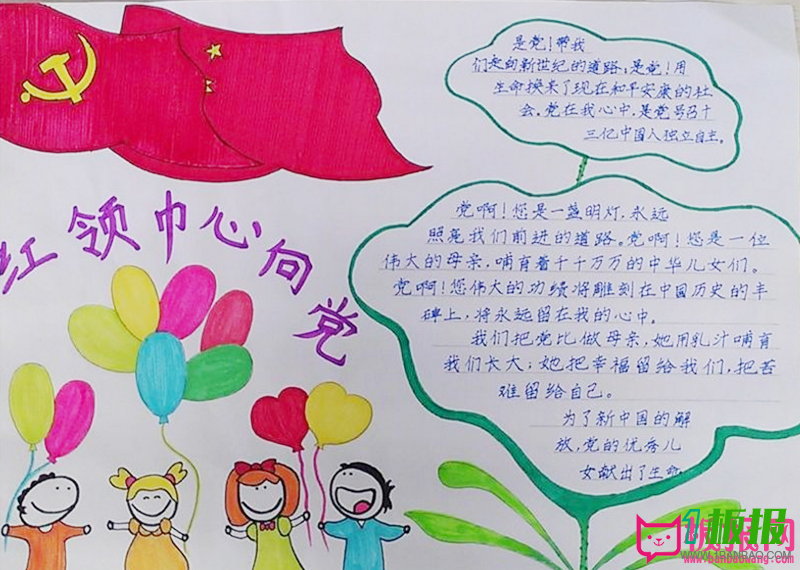 红领巾心向党
是党!带我
们走向新世纪的道路,是党!用
生命换来了现在和平安康的社
会。党在我心中,是党号召十
三亿中国人独立自主。
党啊!您是一盏明灯,永远
照亮我们前进的道路。党啊!您是一位
伟大的母亲,哺育着千千万万的中华儿女们。
党啊!您伟大的功绩将雕刻在中国历史的丰
碑上,将永远留在我的心中。
我们把党比做母亲,她用乳汁哺育
我们长大;她把幸福留给我们,把苦
难留给自己。
为了新中国的解
放,党的优秀儿
女献出了生命
板报
WWW.1BANBAO.COM
www.banbaowang.com